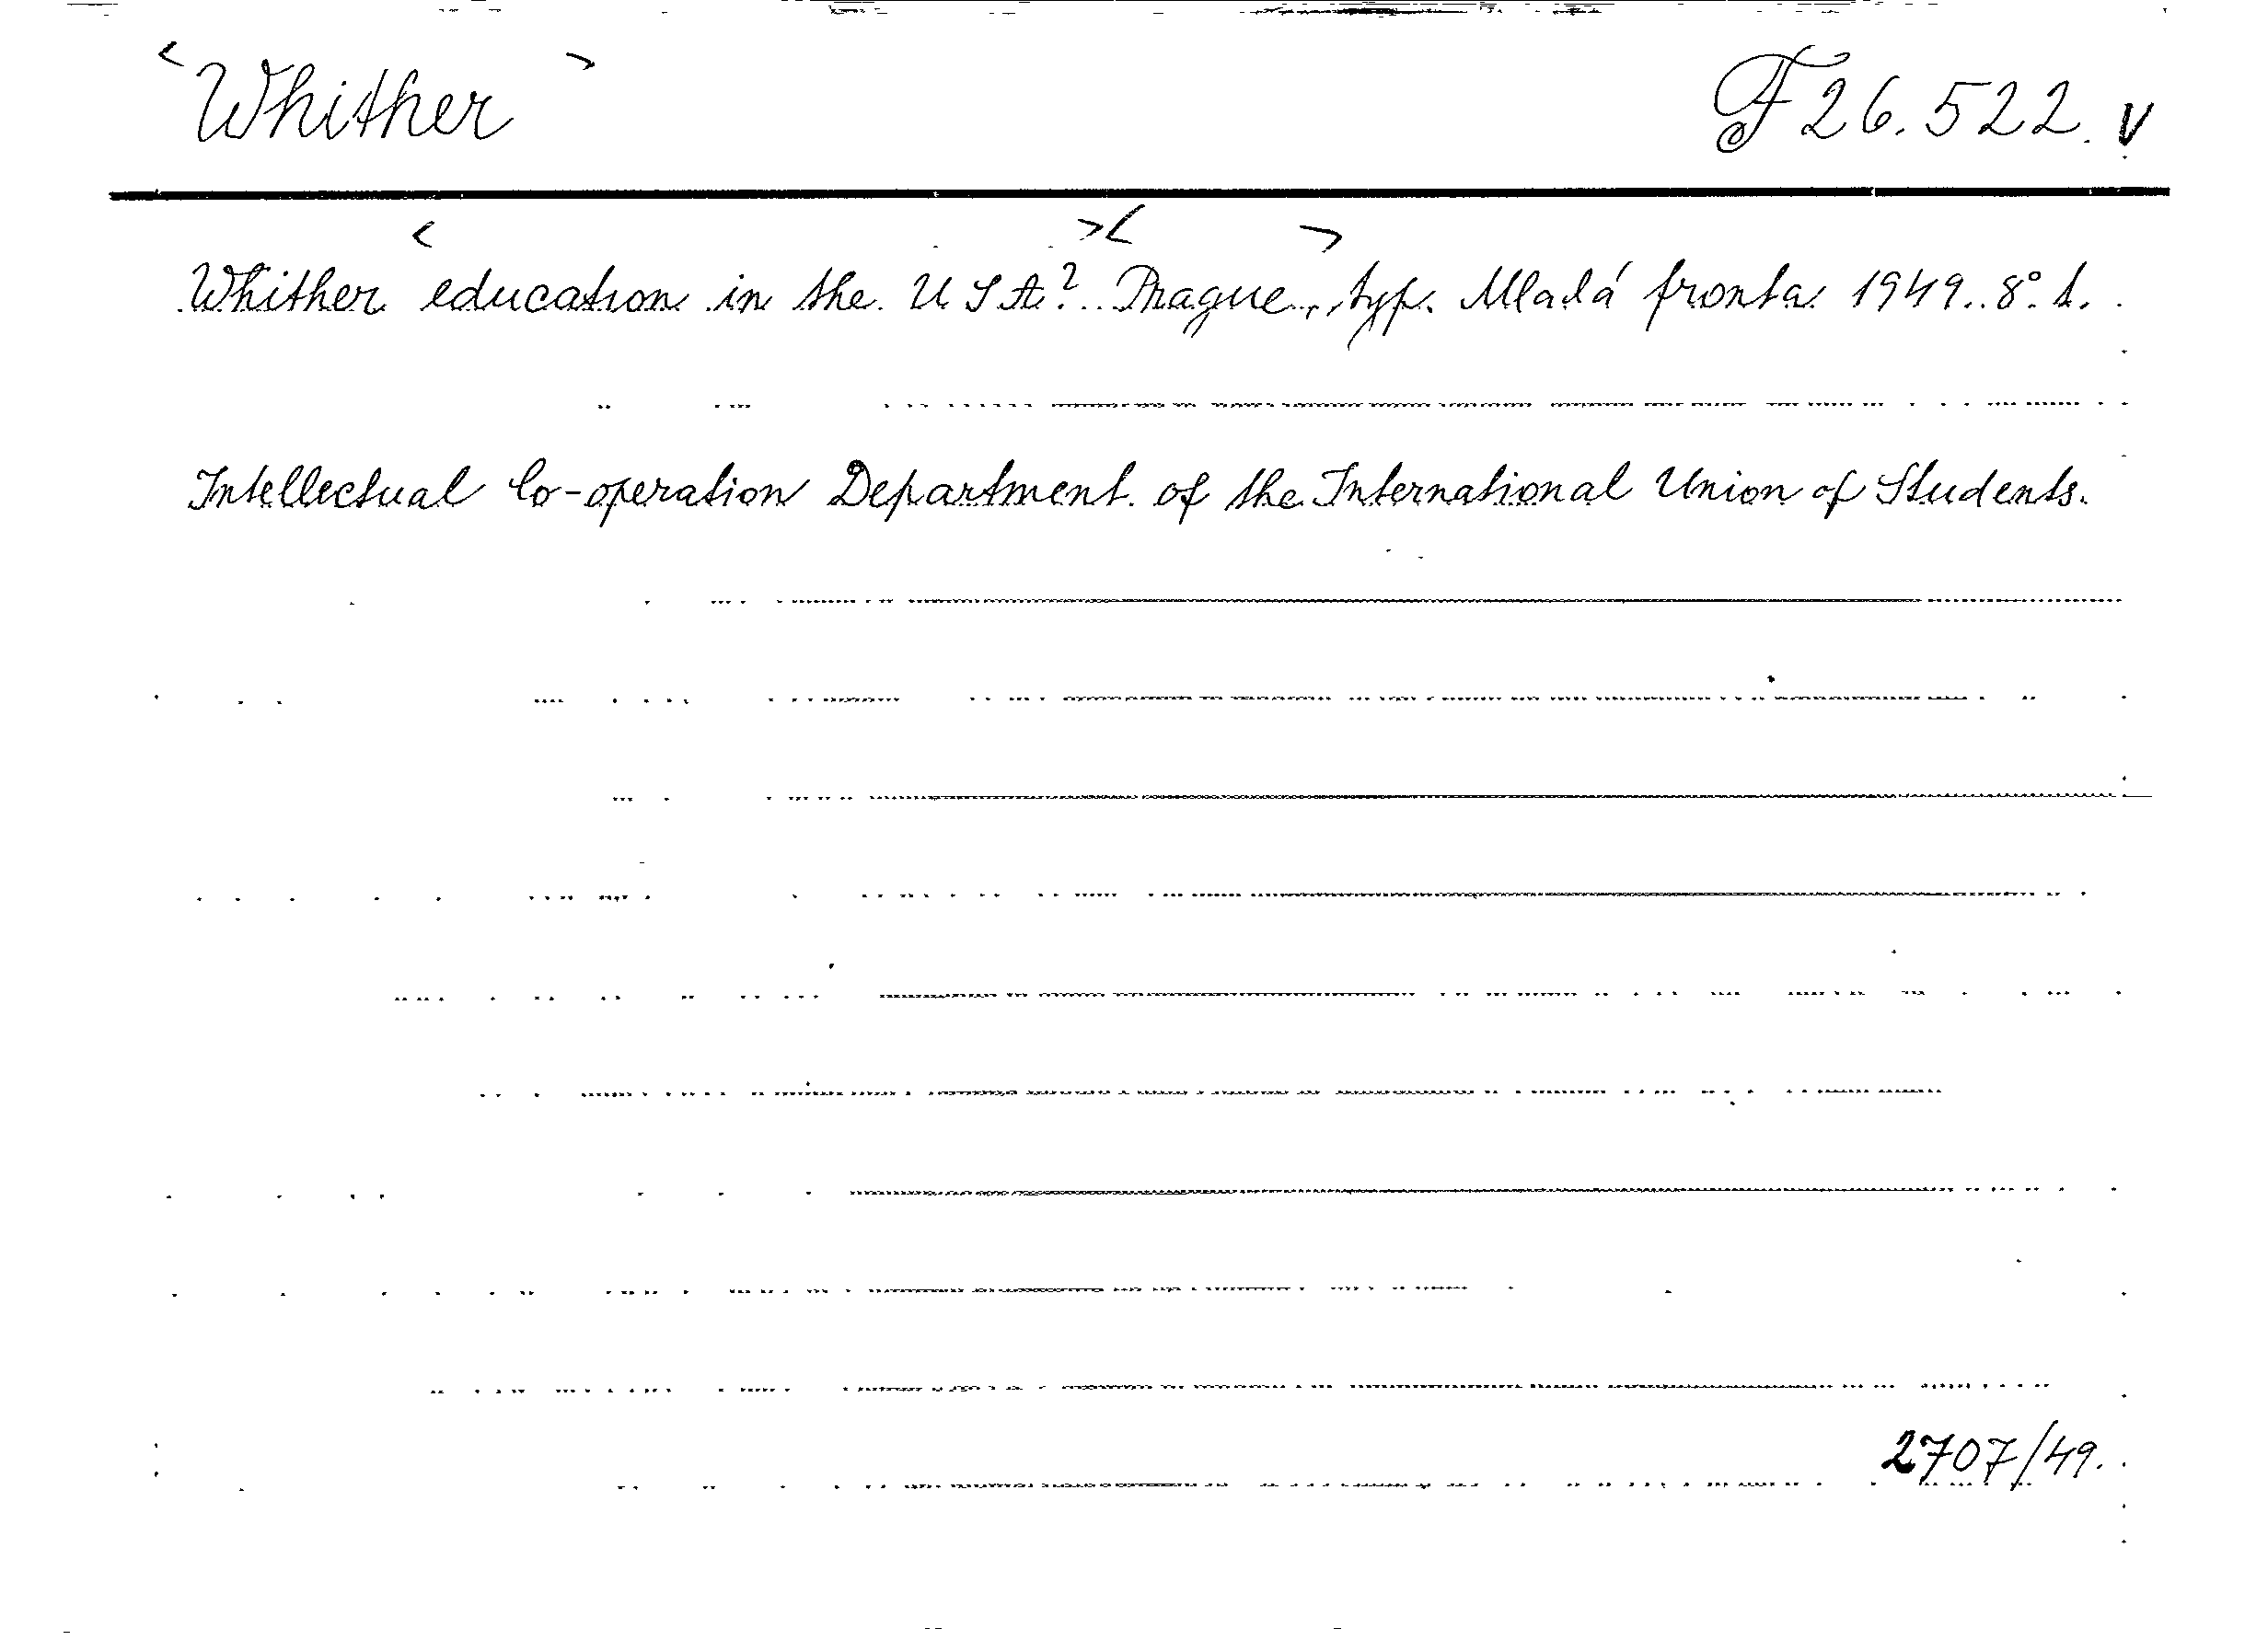 <Whither> F 26.522. V
Whither <education in the USA?> <Prague>, typ. Mladá fronta 1949. 8°.
Intellectual Co-operation Department of the International Union of Students.
2707/49.